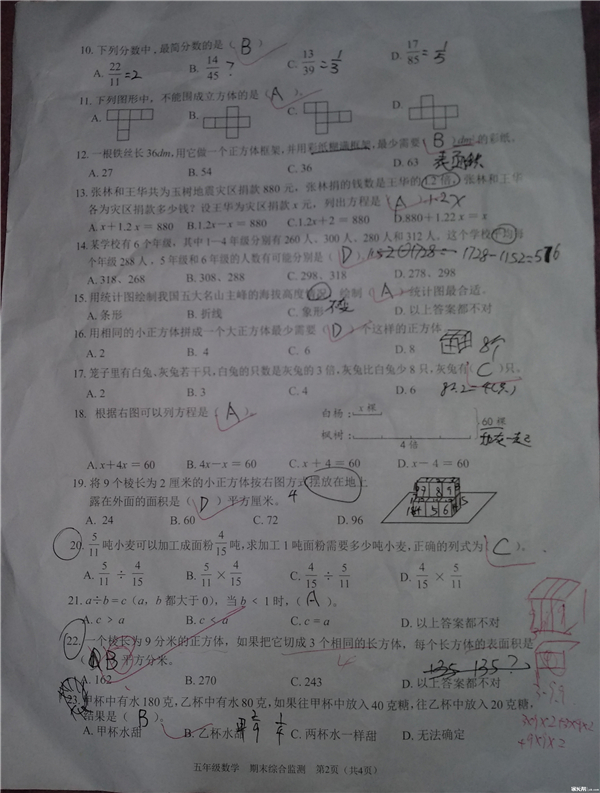 10. 下列分数中，最简分数的是（ B ）
A. 22/11 =2 B. 14/45 ? C. 13/39 =1/3 D. 17/85 =1/5
11. 下列图形中，不能围成立方体的是（ A ）。
A. B. C. D.
12. 一根铁丝长 36dm,用它做一个正方体框架,并用彩纸糊满框架,最少需要（ B ）dm²的彩纸。
A. 27 B. 54 C. 36 D. 63
13. 张林和王华共为玉树地震灾区捐款 880 元，张林捐的钱数是王华的 1.2 倍，张林和王华
各为灾区捐款多少钱？设王华为灾区捐款 x 元，列出方程是（ A ） 1.2x
A. x+1.2 x = 880 B.1.2x－x = 880 C.1.2x+2 = 880 D.880+1.22 x = x
14. 某学校有 6 个年级，其中 1－4 年级分别有 260 人、300 人、280 人和 312 人。这个学校平均每
个年级 288 人。5 年级和 6 年级的人数有可能分别是（ D ）。1152 1728 1728-1152=576
A. 318、268 B. 308、288 C. 298、318 D. 278、298
15. 用统计图绘制我国五大名山主峰的海拔高度情况，绘制（ A ）统计图最合适。
A. 条形 B. 折线 C. 象形 D. 以上答案都不对
16. 用相同的小正方体拼成一个大正方体最少需要（ D ）个这样的正方体
A. 2 B. 4 C. 6 D. 8 8个
17. 笼子里有白兔、灰兔若干只，白兔的只数是灰兔的 3 倍，灰兔比白兔少 8 只，灰兔有（ C ）只。
A. 2 B. 3 C. 4 D. 6 8÷2=4(只)
18. 根据右图可以列方程是（ A ）
白杨： x 棵
60 棵
枫树：
4 倍
A. x+4x = 60 B. 4x－x = 60 C. x + 4 = 60 D. x－4 = 60
19. 将 9 个棱长为 2 厘米的小正方体按右图方式摆放在地上
露在外面的面积是（ D ）平方厘米。 4
A. 24 B. 60 C. 72 D. 96
20. 5/11 吨小麦可以加工成面粉 4/15 吨，求加工 1 吨面粉需要多少吨小麦，正确的列式为（ C ）。
A. 5/11 ÷ 4/15 B. 5/11 × 4/15 C. 4/15 ÷ 5/11 D. 4/15 × 5/11
21. a÷b = c（a，b 都大于 0），当 b < 1 时，（ A ）。
A. c > a B. c < a C. c = a D. 以上答案都不对
22. 一个棱长为 9 分米的正方体，如果把它切成 3 个相同的长方体，每个长方体的表面积是
（ B 平方分米。 135 135?
A. 162 B. 270 C. 243 D. 以上答案都不对
23. 甲杯中有水 180 克，乙杯中有水 80 克，如果往甲杯中放入 40 克糖，往乙杯中放入 20 克糖，
结果是（ B ）。
A. 甲杯水甜 B. 乙杯水甜 C. 两杯水一样甜 D. 无法确定
五年级数学 期末综合监测 第2页（共4页）